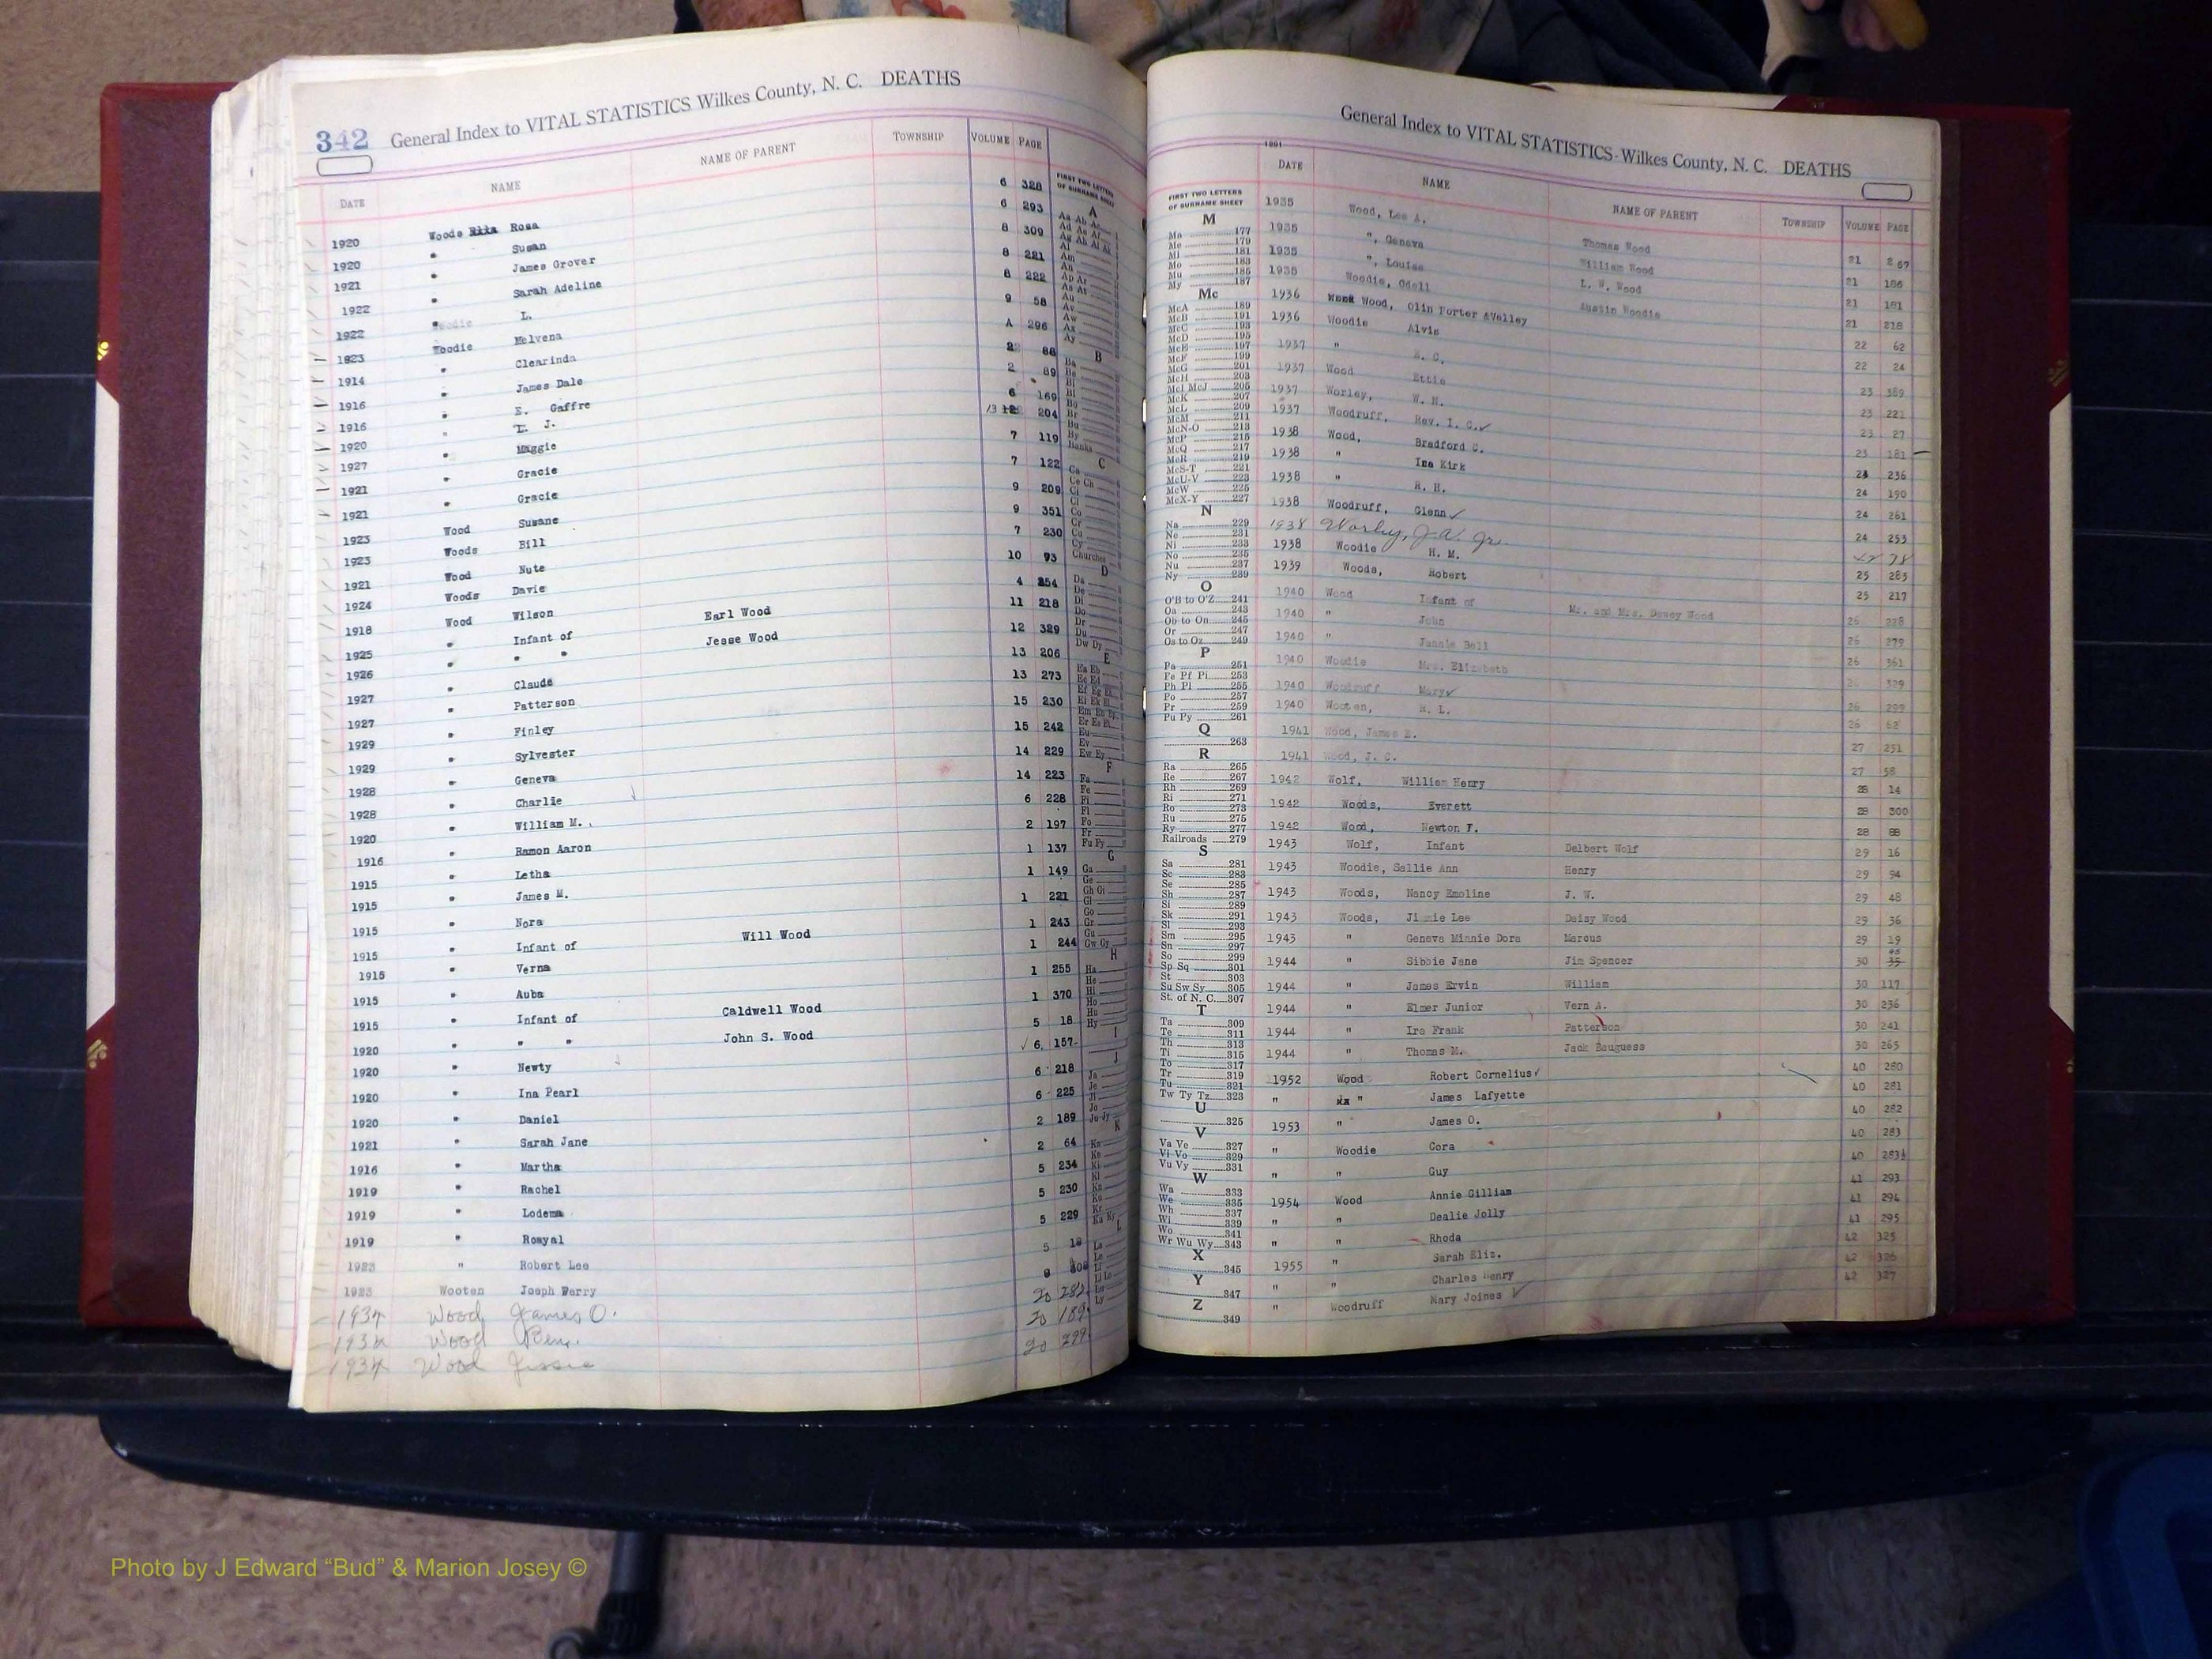 342 General Index to VITAL STATISTICS Wilkes County, N. C. DEATHS
DATE NAME NAME OF PARENT TOWNSHIP VOLUME PAGE
1920 Woods Rosa 6 328
1920 " Susan 6 293
1921 " James Grover 8 309
1922 " Sarah Adeline 8 221
1922 " L. 8 222
1923 Woodie Melvena 9 58
1914 " Clearinda A 296
1916 " James Dale 2 88
1916 " E. Gaffre 2 89
1920 " L. J. 6 169
1927 " Maggie 13 204
1921 " Gracie 7 119
1921 " Gracie 7 122
1923 Wood Susane 9 209
1923 Woods Bill 9 351
1921 Wood Nute 7 230
1924 Woods Davie 10 93
1918 Wood Wilson 4 254
1925 " Infant of Earl Wood 11 218
1926 " " " Jesse Wood 12 329
1927 " Claude 13 206
1927 " Patterson 13 273
1929 " Finley 15 230
1929 " Sylvester 15 242
1928 " Geneva 14 229
1928 " Charlie 14 223
1920 " William M. 6 228
1916 " Ramon Aaron 2 197
1915 " Letha 1 137
1915 " James M. 1 149
1915 " Nora 1 221
1915 " Infant of Will Wood 1 243
1915 " Verna 1 244
1915 " Auba 1 255
1915 " Infant of Caldwell Wood 1 370
1920 " " " John S. Wood 5 18
1920 " Newty 6 157
1920 " Ina Pearl 6 218
1920 " Daniel 6 225
1921 " Sarah Jane 2 189
1916 " Martha 2 64
1919 " Rachel 5 234
1919 " Lodema 5 230
1919 " Romyal 5 229
1923 " Robert Lee 5 18
1923 Wooten Joseph Berry
1934 Wood James O. 20 282
1934 Wood Ben. 20 189
1934 Wood Jessie 20 299
FIRST TWO LETTERS OF SURNAME SHEET
A
B
C
D
E
F
G
H
I
J
K
L
General Index to VITAL STATISTICS-Wilkes County, N. C. DEATHS
1891
DATE NAME NAME OF PARENT TOWNSHIP VOLUME PAGE
FIRST TWO LETTERS
OF SURNAME SHEET
M
Ma 177
Me 179
Mi 181
Mo 183
Mu 185
My 187
Mc
McA 189
McB 191
McC 193
McD 195
McE 197
McF 199
McG 201
McH 203
McI McJ 205
McK 207
McL 209
McM 211
McN-O 213
McP 215
McQ 217
McR 219
McS-T 221
McU-V 223
McW 225
McX-Y 227
N
Na 229
Ne 231
Ni 233
No 235
Nu 237
Ny 239
O
O'B to O'Z 241
Oa 243
Ob to On 245
Or 247
Os to Oz 249
P
Pa 251
Pe Pf Pi 253
Ph Pl 255
Po 257
Pr 259
Pu Py 261
Q
263
R
Ra 265
Re 267
Rh 269
Ri 271
Ro 273
Ru 275
Ry 277
Railroads 279
S
Sa 281
Sc 283
Se 285
Sh 287
Si 289
Sk 291
Sl 293
Sm 295
Sn 297
So 299
Sp Sq 301
St 303
Su Sw Sy 305
St. of N. C. 307
T
Ta 309
Te 311
Th 313
Ti 315
To 317
Tr 319
Tu 321
Tw Ty Tz 323
U
325
V
Va Ve 327
Vi Vo 329
Vu Vy 331
W
Wa 333
We 335
Wh 337
Wi 339
Wo 341
Wr Wu Wy 343
X
345
Y
347
Z
349
1935 Wood, Lee A. Thomas Wood 21 267
1935 ", Geneva William Wood 21 186
1935 ", Louise L. W. Wood 21 181
1935 Woodie, Odell Austin Woodie 21 218
1936 Wood, Olin Porter &Valley 22 62
1936 Woodie Alvis 22 24
1937 " E. C. 23 389
1937 Wood Ettie 23 221
1937 Worley, W. H. 23 27
1937 Woodruff, Rev. I. C. 23 181
1938 Wood, Bradford C. 24 236
1938 " Ina Kirk 24 190
1938 " R. H. 24 261
1938 Woodruff, Glenn 24 253
1938 Worley, J.A. Jr.
1938 Woodie H. M. 25 283
1939 Woods, Robert 25 217
1940 Wood Infant of Mr. and Mrs. Dewey Wood 26 228
1940 " John 26 279
1940 " Junnie Bell 26 361
1940 Woodie Mrs. Elizabeth 26 329
1940 Woodruff Mary 26 299
1940 Wooten, R. L. 26 62
1941 Wood, James E. 27 251
1941 Wood, J. C. 27 58
1942 Wolf, William Henry 28 14
1942 Woods, Everett 28 300
1942 Wood, Newton F. 28 88
1943 Wolf, Infant Delbert Wolf 29 16
1943 Woodie, Sallie Ann Henry 29 94
1943 Woods, Nancy Emoline J. W. 29 48
1943 Woods, Jimmie Lee Daisy Wood 29 36
1943 " Geneva Minnie Dora Marcus 29 19
1944 " Sibbie Jane Jim Spencer 30
1944 " James Ervin William 30 117
1944 " Elmer Junior Vern A. 30 236
1944 " Ira Frank Patterson 30 241
1944 " Thomas M. Jack Bauguess 30 265
1952 Wood Robert Cornelius 40 280
" " James Lafyette 40 281
1953 " James O. 40 282
" Woodie Cora 40 283
" " Guy 40 283½
1954 Wood Annie Gilliam 41 293
" " Dealie Jolly 41 294
" " Rhoda 41 295
1955 " Sarah Eliz. 42 325
" " Charles Henry 42 326
" Woodruff Mary Joines 42 327
Photo by J Edward “Bud” & Marion Josey ©